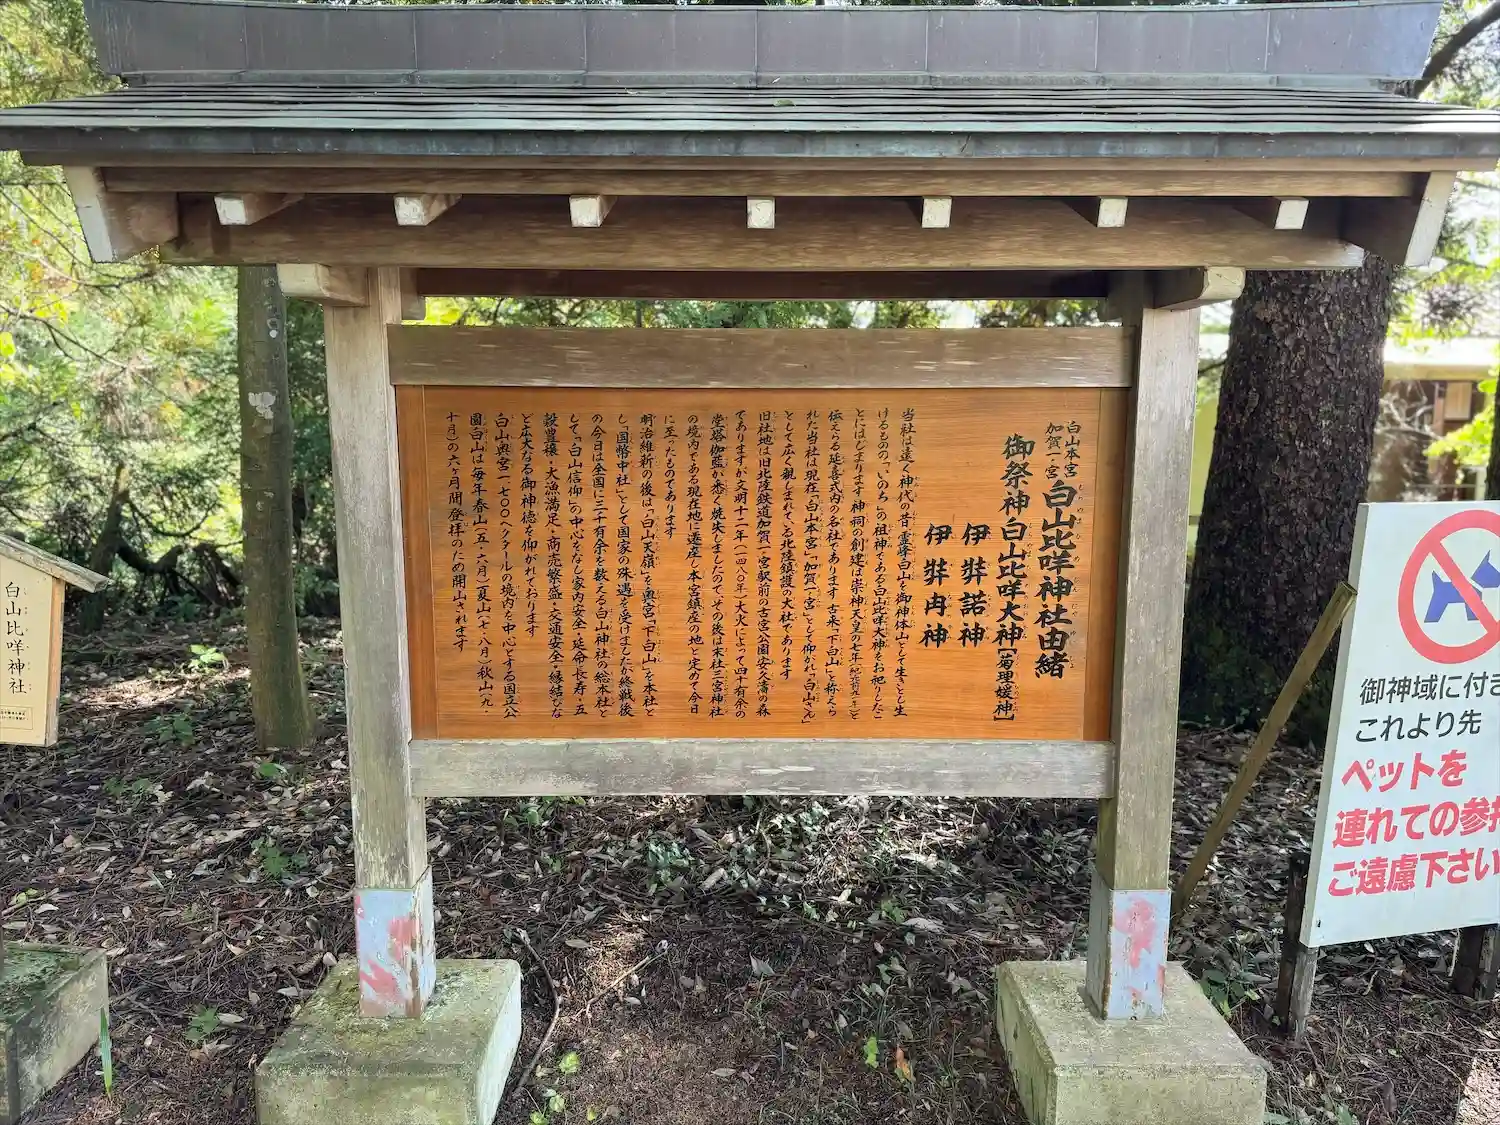 白山本宮
加賀一ノ宮
白山比咩神社由緒
御祭神 白山比咩大神［菊理媛神］
伊弉諾神
伊弉冉神
当社は遠く神代の昔、霊峰白山を御神体山として生きとし生
けるものの「いのち」の祖神である白山比咩大神をお祀りしたこ
とにはじまります 神祠の創建は崇神天皇の七年
伝えらる延喜式内の名社であります 古来「下白山」と称えら
れた当社は現在「白山本宮」「加賀一ノ宮」として仰がれ「白山さん」
として広く親しまれている北陸鎮護の大社であります
旧社地は旧北陸鉄道加賀一ノ宮駅前の古宮公園安久濤の森
でありますが文明十二年（一四八〇年）大火によって四十有余の
堂塔伽藍が悉く焼失しましたので、その後は末社三宮神社
の境内である現在地に遷座し本宮鎮座の地と定めて今日
に至ったものであります
明治維新の後は「白山天嶺」を奥宮「下白山」を本社と
し「国幣中社」として国家の殊遇を受けましたが終戦後
の今日は全国に三千有余を数える白山神社の総本社と
して「白山信仰」の中心をなし家内安全・延命長寿・五
穀豊穣・大漁満足・商売繁盛・交通安全・縁結びな
ど広大なる御神徳を仰がれております
白山奥宮一、七〇〇ヘクタールの境内を中心とする国立公
園白山は毎年春山（五・六月）夏山（七・八月）秋山（九・
十月）の六ヶ月間登拝のため開山されます
白山比咩神社
御神域に付き
これより先
ペットを
連れての参拝
ご遠慮下さい